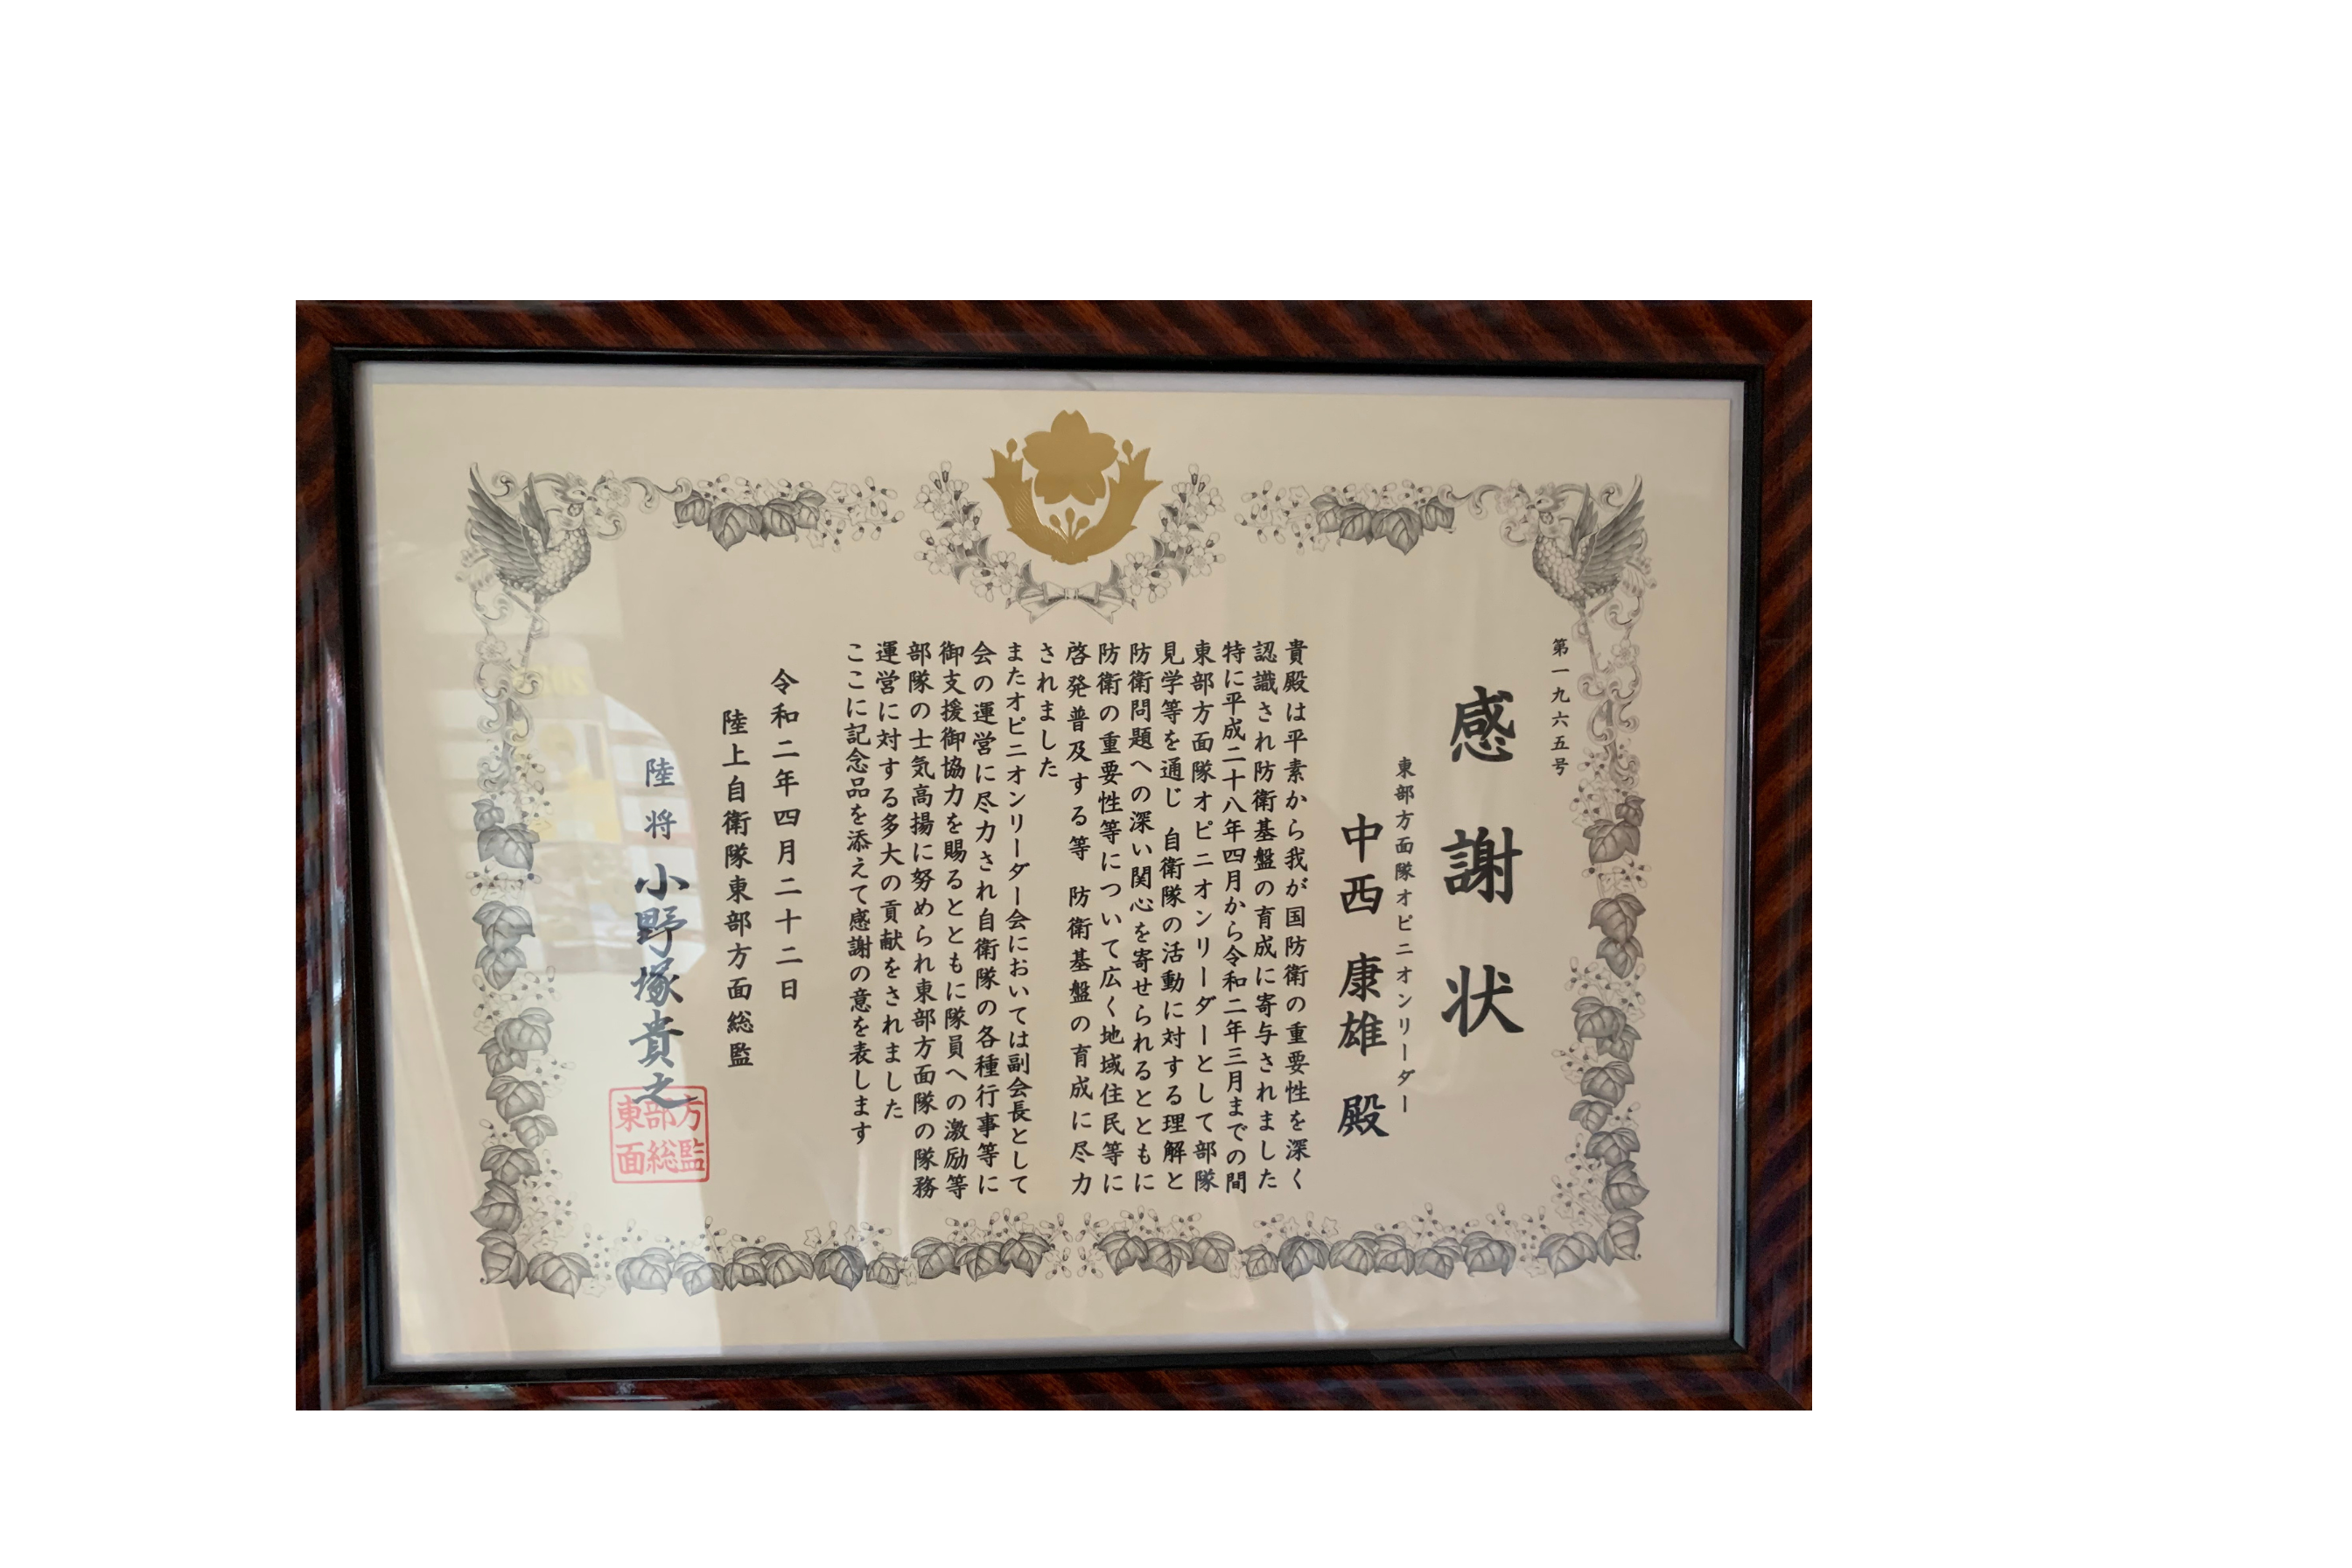 第一九六五号
感謝状
東部方面隊オピニオンリーダー
中西 康雄 殿
貴殿は平素から我が国防衛の重要性を深く
認識され防衛基盤の育成に寄与されました
特に平成二十八年四月から令和二年三月までの間
東部方面隊オピニオンリーダーとして部隊
見学等を通じ 自衛隊の活動に対する理解と
防衛問題への深い関心を寄せられるとともに
防衛の重要性等について広く地域住民等に
啓発普及する等 防衛基盤の育成に尽力
されました
またオピニオンリーダー会においては副会長として
会の運営に尽力され自衛隊の各種行事等に
御支援御協力を賜るとともに隊員への激励等
部隊の士気高揚に努められ東部方面隊の隊務
運営に対する多大の貢献をされました
ここに記念品を添えて感謝の意を表します
令和二年四月二十二日
陸上自衛隊東部方面総監
陸将 小野塚貴之
東部方
面総監